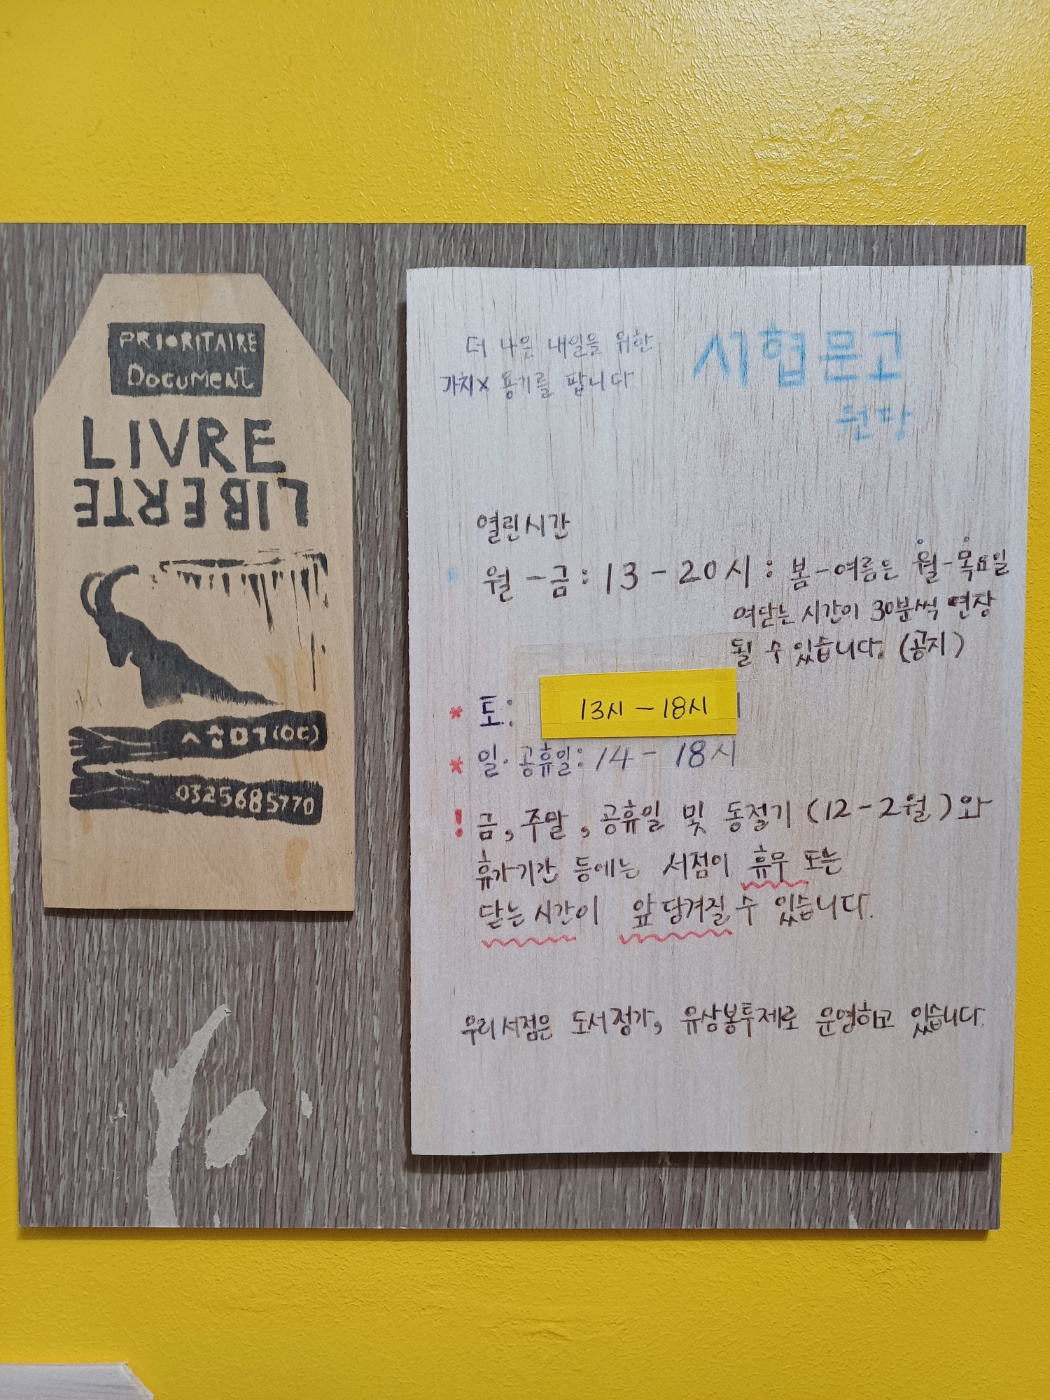 PRIORITAIRE
DOCUMENT
LIVRE
LIBERTE
0325685770
더 나은 내일을 위한
가치X 용기를 팝니다
서협문고
원당
열린시간
월-금: 13-20시: 봄-여름은 월-목요일
여닫는 시간이 30분씩 연장
될 수 있습니다. (공지)
* 토: 13시-18시
* 일·공휴일: 14-18시
! 금, 주말, 공휴일 및 동절기 (12-2월)와
휴가기간 등에는 서점이 휴무 또는
닫는 시간이 앞당겨질 수 있습니다.
우리서점은 도서정가, 유상봉투제로 운영하고 있습니다.